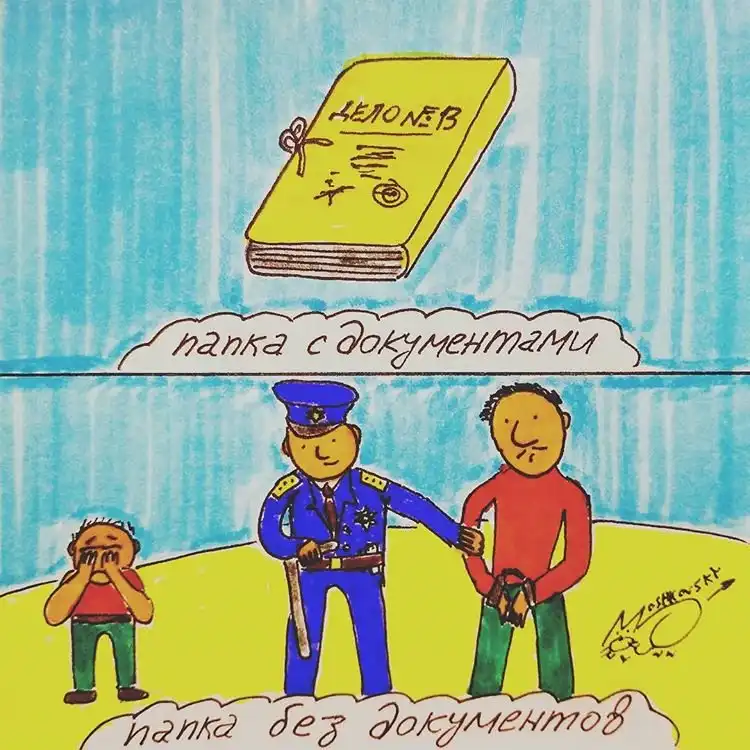 ДЕЛО № 13
папка с документами
папка без документов
Moshkovski